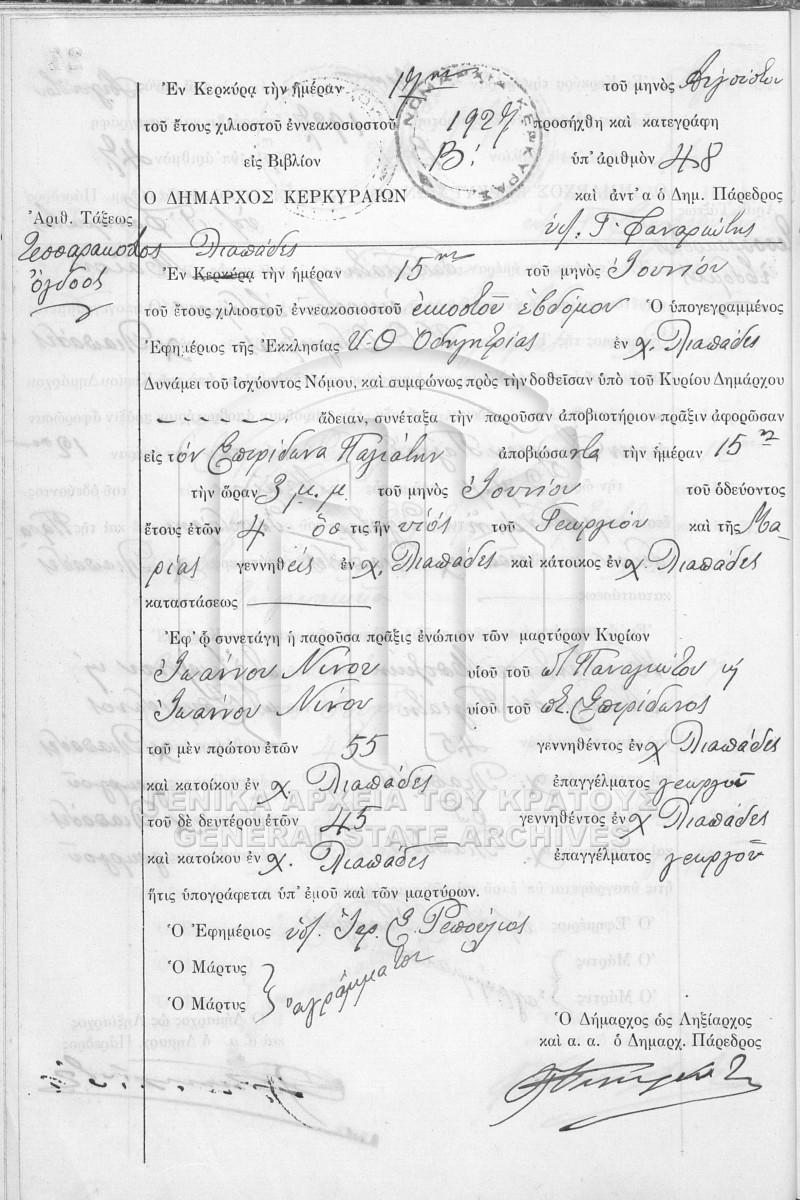 Ἐν Κερκύρᾳ τὴν ἡμέραν 17ην τοῦ μηνὸς Αὐγούστου
τοῦ ἔτους χιλιοστοῦ ἐννεακοσιοστοῦ 1927 προσήχθη καὶ κατεγράφη
εἰς Βιβλίον Β! ὑπ' ἀριθμὸν 48
Ο ΔΗΜΑΡΧΟΣ ΚΕΡΚΥΡΑΙΩΝ καὶ ἀντ' α ὁ Δημ. Πάρεδρος
ΝΟΜΑΡΧΙΑ ΚΕΡΚΥΡΑΣ
Ἀριθ. Τάξεως
Τεσσαρακοστὸς
ὄγδοος
ὑπ. Γ. Φαναριώτης
Λιαπάδες
Ἐν Κερκύρᾳ τὴν ἡμέραν 15ην τοῦ μηνὸς Ἰουνίου
τοῦ ἔτους χιλιοστοῦ ἐννεακοσιοστοῦ εἰκοστοῦ ἑβδόμου Ὁ ὑπογεγραμμένος
Ἐφημέριος τῆς Ἐκκλησίας Υ.Θ Ὁδηγητρίας ἐν χ. Λιαπάδες
Δυνάμει τοῦ ἰσχύοντος Νόμου, καὶ συμφώνως πρὸς τὴν δοθεῖσαν ὑπὸ τοῦ Κυρίου Δημάρχου
ἄδειαν, συνέταξα τὴν παροῦσαν ἀποβιωτήριον πρᾶξιν ἀφορῶσαν
εἰς τὸν Σπυρίδωνα Παγιάτην ἀποβιώσαντα τὴν ἡμέραν 15ην
τὴν ὥραν 3 μ. μ. τοῦ μηνὸς Ἰουνίου τοῦ ὁδεύοντος
ἔτους ἐτῶν 4 ὅστις ἦν υἱὸς τοῦ Γεωργίου καὶ τῆς Μα-
ρίας γεννηθεὶς ἐν χ. Λιαπάδες καὶ κάτοικος ἐν χ. Λιαπάδες
καταστάσεως
Ἐφ' ᾧ συνετάγη ἡ παροῦσα πρᾶξις ἐνώπιον τῶν μαρτύρων Κυρίων
Ἰωάννου Νίνου υἱοῦ τοῦ Παναγιώτου
Ἰωάννου Νίνου υἱοῦ τοῦ Σπυρίδωνος
τοῦ μὲν πρώτου ἐτῶν 55 γεννηθέντος ἐν χ Λιαπάδες
καὶ κατοίκου ἐν χ. Λιαπάδες ἐπαγγέλματος γεωργοῦ
ΓΕΝΙΚΑ ΑΡΧΕΙΑ ΤΟΥ ΚΡΑΤΟΥΣ
τοῦ δὲ δευτέρου ἐτῶν 45 γεννηθέντος ἐν χ Λιαπάδες
GENERAL STATE ARCHIVES
καὶ κατοίκου ἐν χ. Λιαπάδες ἐπαγγέλματος γεωργοῦ
ἥτις ὑπογράφεται ὑπ' ἐμοῦ καὶ τῶν μαρτύρων.
Ὁ Ἐφημέριος ὑπ. Ἱερ. Σ. Ρεπούλιος
Ὁ Μάρτυς
Ὁ Μάρτυς
ἀγράμματοι
Ὁ Δήμαρχος ὡς Ληξίαρχος
καὶ α. α. ὁ Δημαρχ. Πάρεδρος